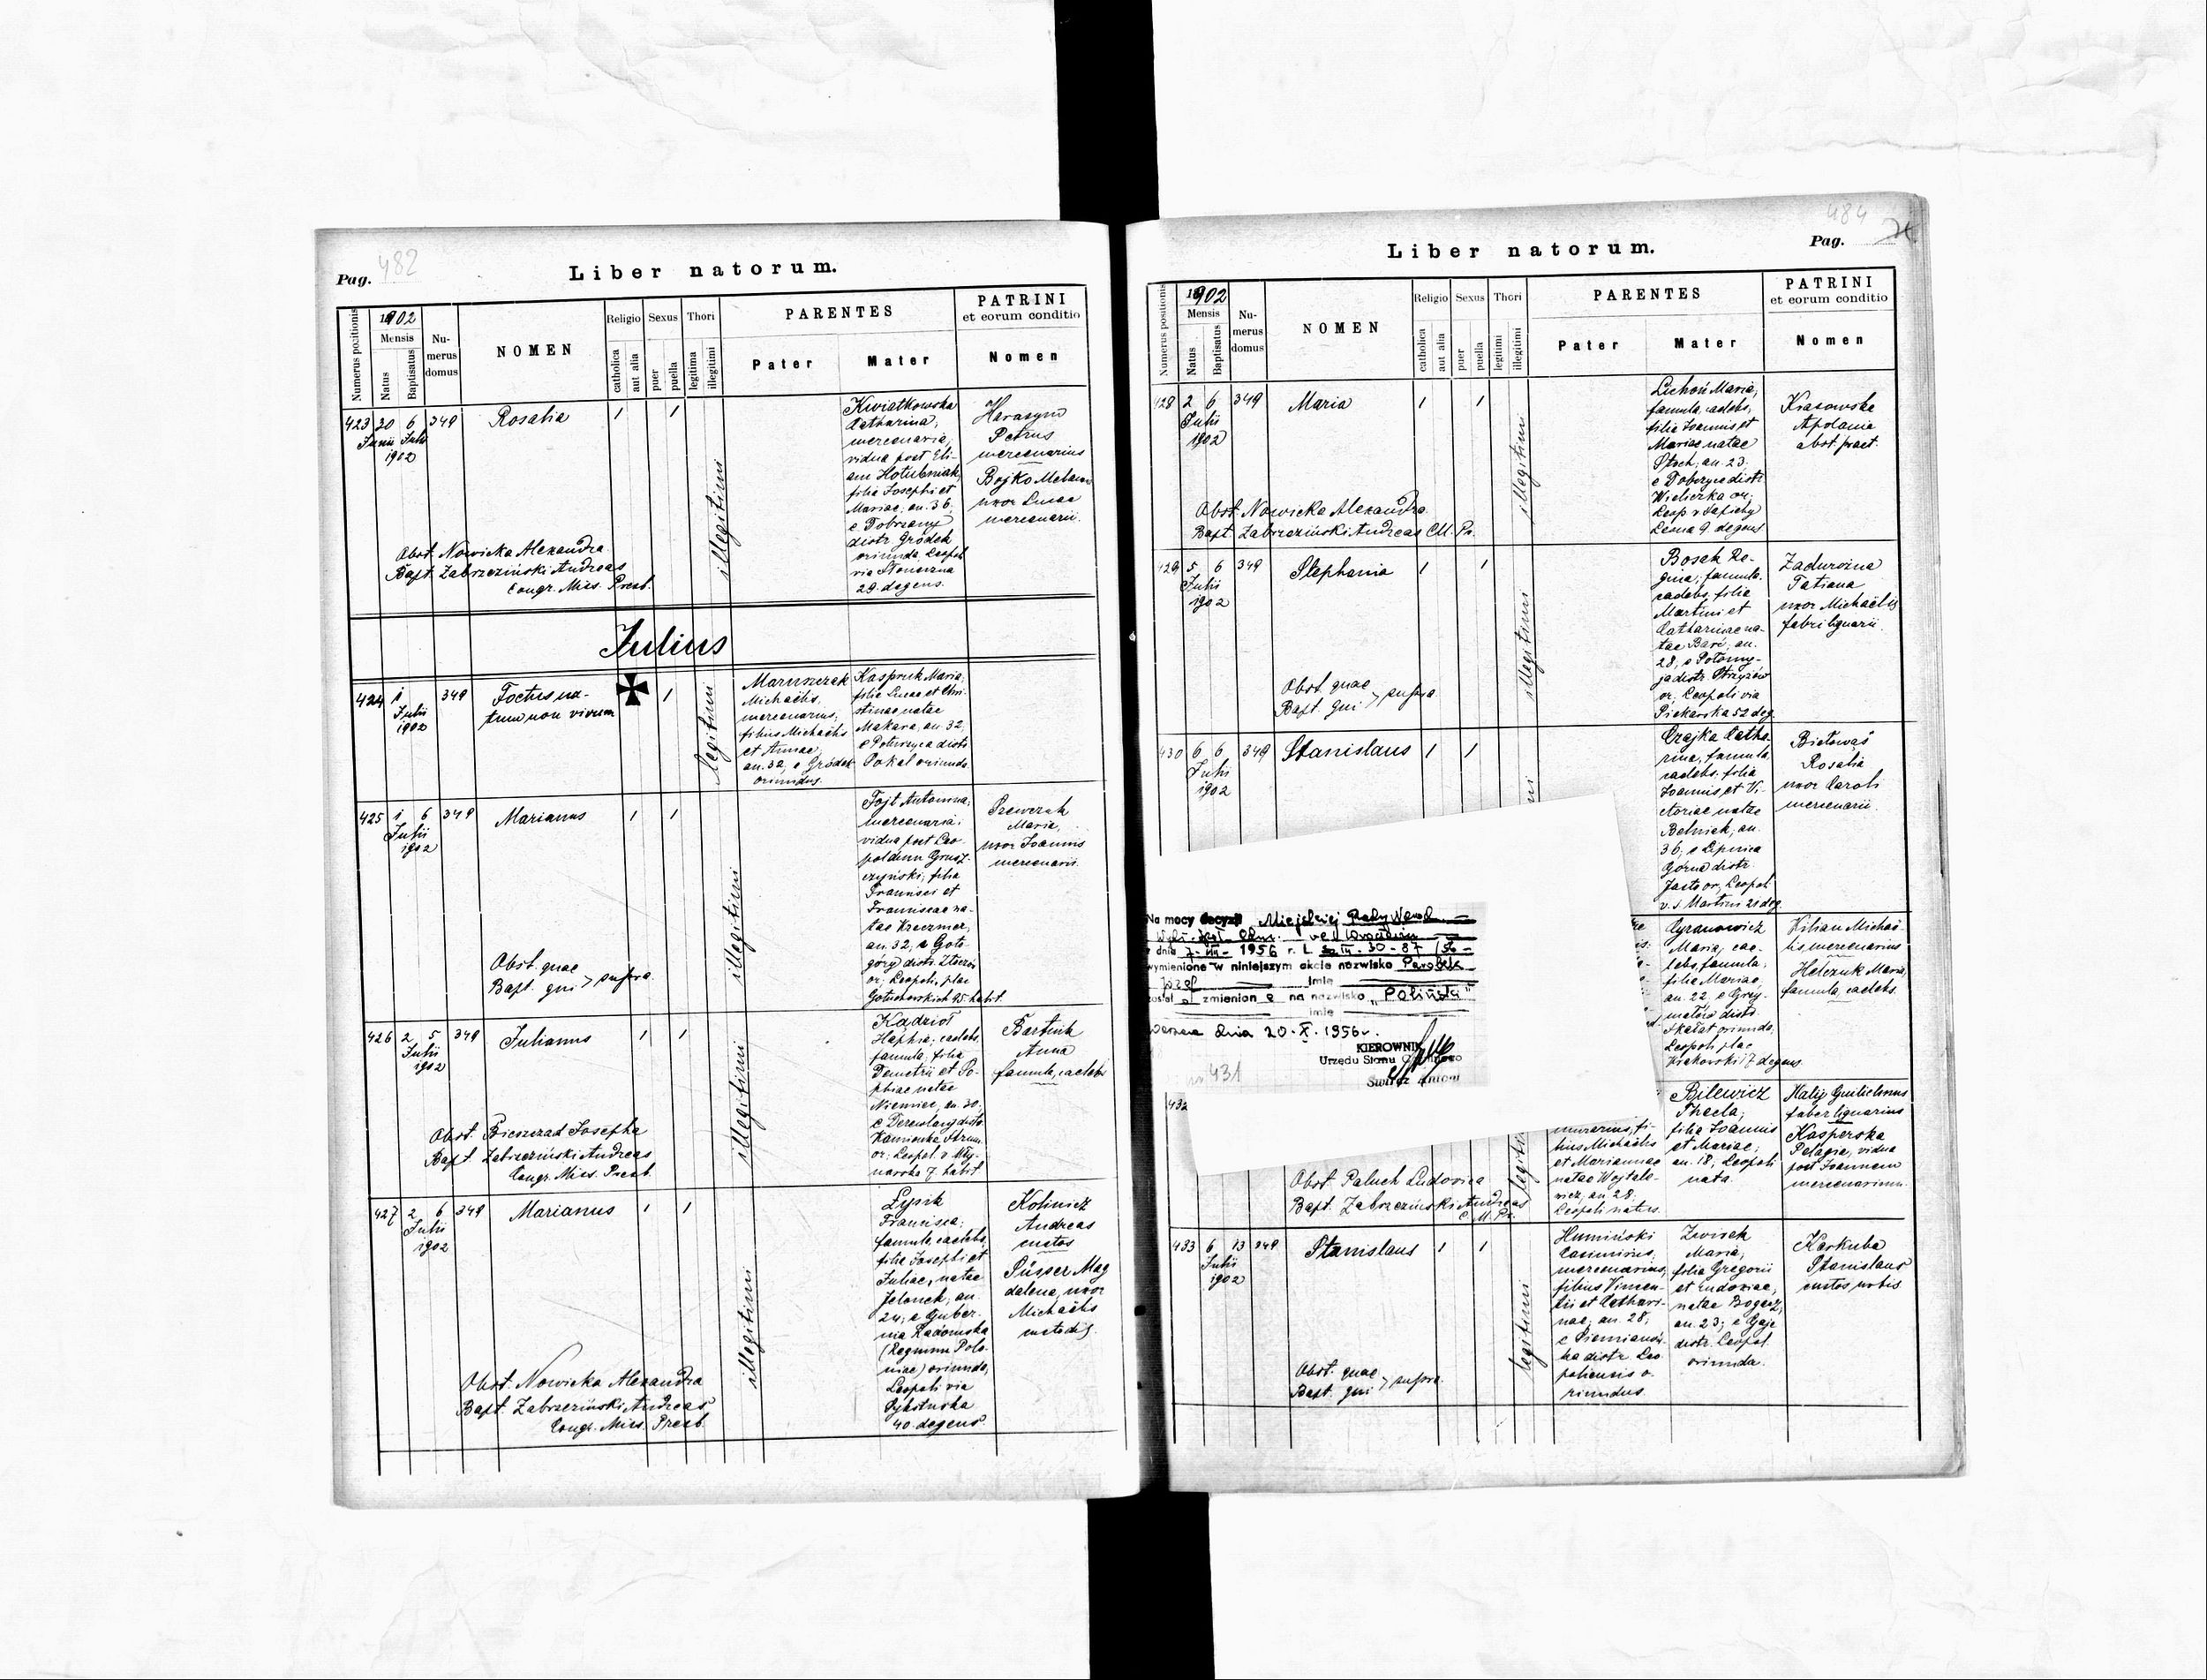 Pag. 482
Liber natorum.
Numerus positionis
1902
Mensis
Natus
Baptisatus
Nu-
merus
domus
NOMEN
Religio
catholica
aut alia
Sexus
puer
puella
Thori
legitima
illegitimi
PARENTES
Pater
Mater
PATRINI
et eorum conditio
Nomen
423 30 6 349 Rosalia 1 1
Junii Julii
1902
illegitimi
Kwiatkowska
Catharina,
mercenaria,
vidua post Eli-
am Hołubniak,
filia Josephi et
Mariae, an. 36,
e Dobrzany
distr. Gródek
oriunda, Leopol.
via Słoneczna
29. degens.
Herasym
Petrus
mercenarius
Bojko
uxor Lucae
mercenarii.
Obst. Nowicka Alexandra
Bapt. Zabrzeziński Andreas
Congr. Miss. Presb.
Julius
424 1 349 Foetus na-
Julii tum non vivum
1902
1
legitimi
Maruszczak
Michaelis,
mercenarius,
filius Michaelis
et Annae,
an. 32, e Gródek
oriundus.
Kaspruk Maria,
filia Lucae et Chri-
stinae natae
Makara, an. 32,
e Poturzyca distr.
Sokal oriunda.
425 1 6 349 Marianus 1 1
Julii
1902
illegitimi
Fojt Antonina,
mercenaria,
vidua post Leo-
poldum Grusz-
czyński, filia
Francisci et
Franciscae na-
tae Kreczmer,
an. 32, e Goło-
góry distr. Złoczów
or., Leopoli, plac
Gołuchowskich 95 habit.
Szewczuk
Maria,
uxor Joannis
mercenarii.
Obst. quae
Bapt. qui > supra.
426 2 5 349 Julianus 1 1
Julii
1902
illegitimi
Kądzioł
Haphia, caelebs,
famula, filia
Demetrii et So-
phiae natae
Niemiec, an. 30,
e Derewlany distr.
Kamionka Strum.
or., Leopol. v. Mły-
narska 7 habit.
Bartnik
Anna
famula, caelebs
Obst. Bieszczad Josepha
Bapt. Zabrzeziński Andreas
Congr. Miss. Presb.
427 2 6 349 Marianus 1 1
Julii
1902
illegitimi
Łysik
Francisca,
famula, caelebs,
filia Josephi et
Juliae, natae
Jelonek, an.
24, e Guber-
nia Radomska
(Regnum Polo-
niae) oriunda,
Leopoli via
Sykstuska
40. degens.
Kolinicz
Andreas
custos
Püsser Mag
dalena, uxor
Michaelis
custodis.
Obst. Nowicka Alexandra
Bapt. Zabrzeziński Andreas
Congr. Miss. Presb.
484
Pag.
Liber natorum.
Numerus positionis
1902
Mensis
Natus
Baptisatus
Nu-
merus
domus
NOMEN
Religio
catholica
aut alia
Sexus
puer
puella
Thori
legitimi
illegitimi
PARENTES
Pater
Mater
PATRINI
et eorum conditio
Nomen
428 2 6 349 Maria 1 1
Julii
1902
illegitimi
Lichoń Maria,
famula, caelebs,
filia Joannis et
Mariae natae
Stoch, an. 23,
e Dobczyce distr.
Wieliczka or.,
Leop. v. Sapiehy
Leona 9. degens
Krasowska
Apolonia
obst. praet.
Obst. Nowicka Alexandra.
Bapt. Zabrzeziński Andreas C.M. Pr.
429 5 6 349 Stephania 1 1
Julii
1902
illegitimi
Bosak Re-
gina, famula,
caelebs, filia
Martini et
Catharinae na-
tae Baré, an.
28, e Połomy-
ja distr. Strzyżów
or., Leopoli via
Piekarska 52 deg.
Zadurowina
Tatiana
uxor Michaelis
fabri lignarii.
Obst. quae
Bapt. qui > supra
430 6 6 349 Stanislaus 1 1
Julii
1902
Czajka Catha-
rina, famula,
caelebs, filia
Joannis et Vi-
ctoriae natae
Betniek, an.
36, e Lipnica
Górna distr.
Jasło or., Leopol.
v. S. Martini 21 deg.
Bielowas
Rosalia
uxor Caroli
mercenarii.
Na mocy decyzji Miejskiej Rady Narod.
z dnia 7-III- 1956 r. L. -III-30-87/56-
wymienione w niniejszym akcie nazwisko Parobek
imię
Józef
został o zmienion e na nazwisko „Poliński"
imię
dnia 20. X. 1956 r.
KIEROWNIK
Urzędu Stanu Cywilnego
Śwircz Antoni
431
Cyranowicz
Maria, cae-
lebs, famula,
filia Mariae,
an. 22, e Grzy-
małów distr.
Skałat oriunda,
Leopoli plac
Krakowski 17 degens.
Kilian Michae-
lis mercenarius
Helczuk Maria,
famula, caelebs.
432
legitimi
murarius, fi-
lius Michaelis
et Mariannae
natae Wojtale-
wicz, an. 28,
Leopoli natus.
Bilewicz
Thecla,
filia Joannis
et Mariae,
an. 18, Leopoli
nata.
Halij Guilielmus
faber lignarius
Kasperska
Pelagia, vidua
post Joannem
mercenarium.
Obst. Paluch Ludovica
Bapt. Zabrzeziński Andreas
C. M. Pr.
433 6 13 349 Stanislaus 1 1
Julii
1902
legitimi
Humiński
Casimirus,
mercenarius,
filius Vincen-
tii et Cathari-
nae, an. 28,
e Siemianów-
ka distr. Leo-
poliensis o-
riundus.
Zwisek
Maria,
filia Gregorii
et Eudoxiae,
natae Bogacz,
an. 23, e Gaje
distr. Leopol.
oriunda.
Karkuba
Stanislaus
custos urbis
Obst. quae
Bapt. qui > supra.